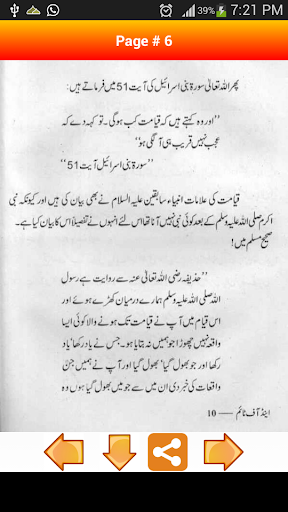 39% 7:21 PM
Page # 6
پھر اللہ تعالیٰ سورۃ بنی اسرائیل کی آیت 51 میں فرماتے ہیں:
”اور وہ کہتے ہیں کہ قیامت کب ہوگی۔ تو کہہ دے کہ
عجب نہیں قریب ہی آ لگی ہو“
”سورۃ بنی اسرائیل آیت 51“
قیامت کی علامات انبیاء سابقین علیہ السلام نے بھی بیان کی ہیں اور کیونکہ نبی
اکرم صلی اللہ علیہ وسلم کے بعد کوئی نبی نہیں آنا تھا اس لئے انہوں نے تفصیلاً اس کا بیان کیا ہے۔
صحیح مسلم میں!
”حذیفہ رضی اللہ تعالیٰ عنہ سے روایت ہے رسول
اللہ صلی اللہ علیہ وسلم ہمارے درمیان کھڑے ہوئے اور
اس قیام میں آپ نے قیامت تک ہونے والا کوئی ایسا
واقعہ نہیں چھوڑا جو ہمیں نہ بتایا ہو۔ جس نے یاد رکھا‘ یاد
رکھا اور جو بھول گیا‘ بھول گیا اور آپ نے ہمیں جن
واقعات کی خبر دی ان میں سے جو میں بھول گیا ہوں وہ
اینڈ آف ٹائم — 10